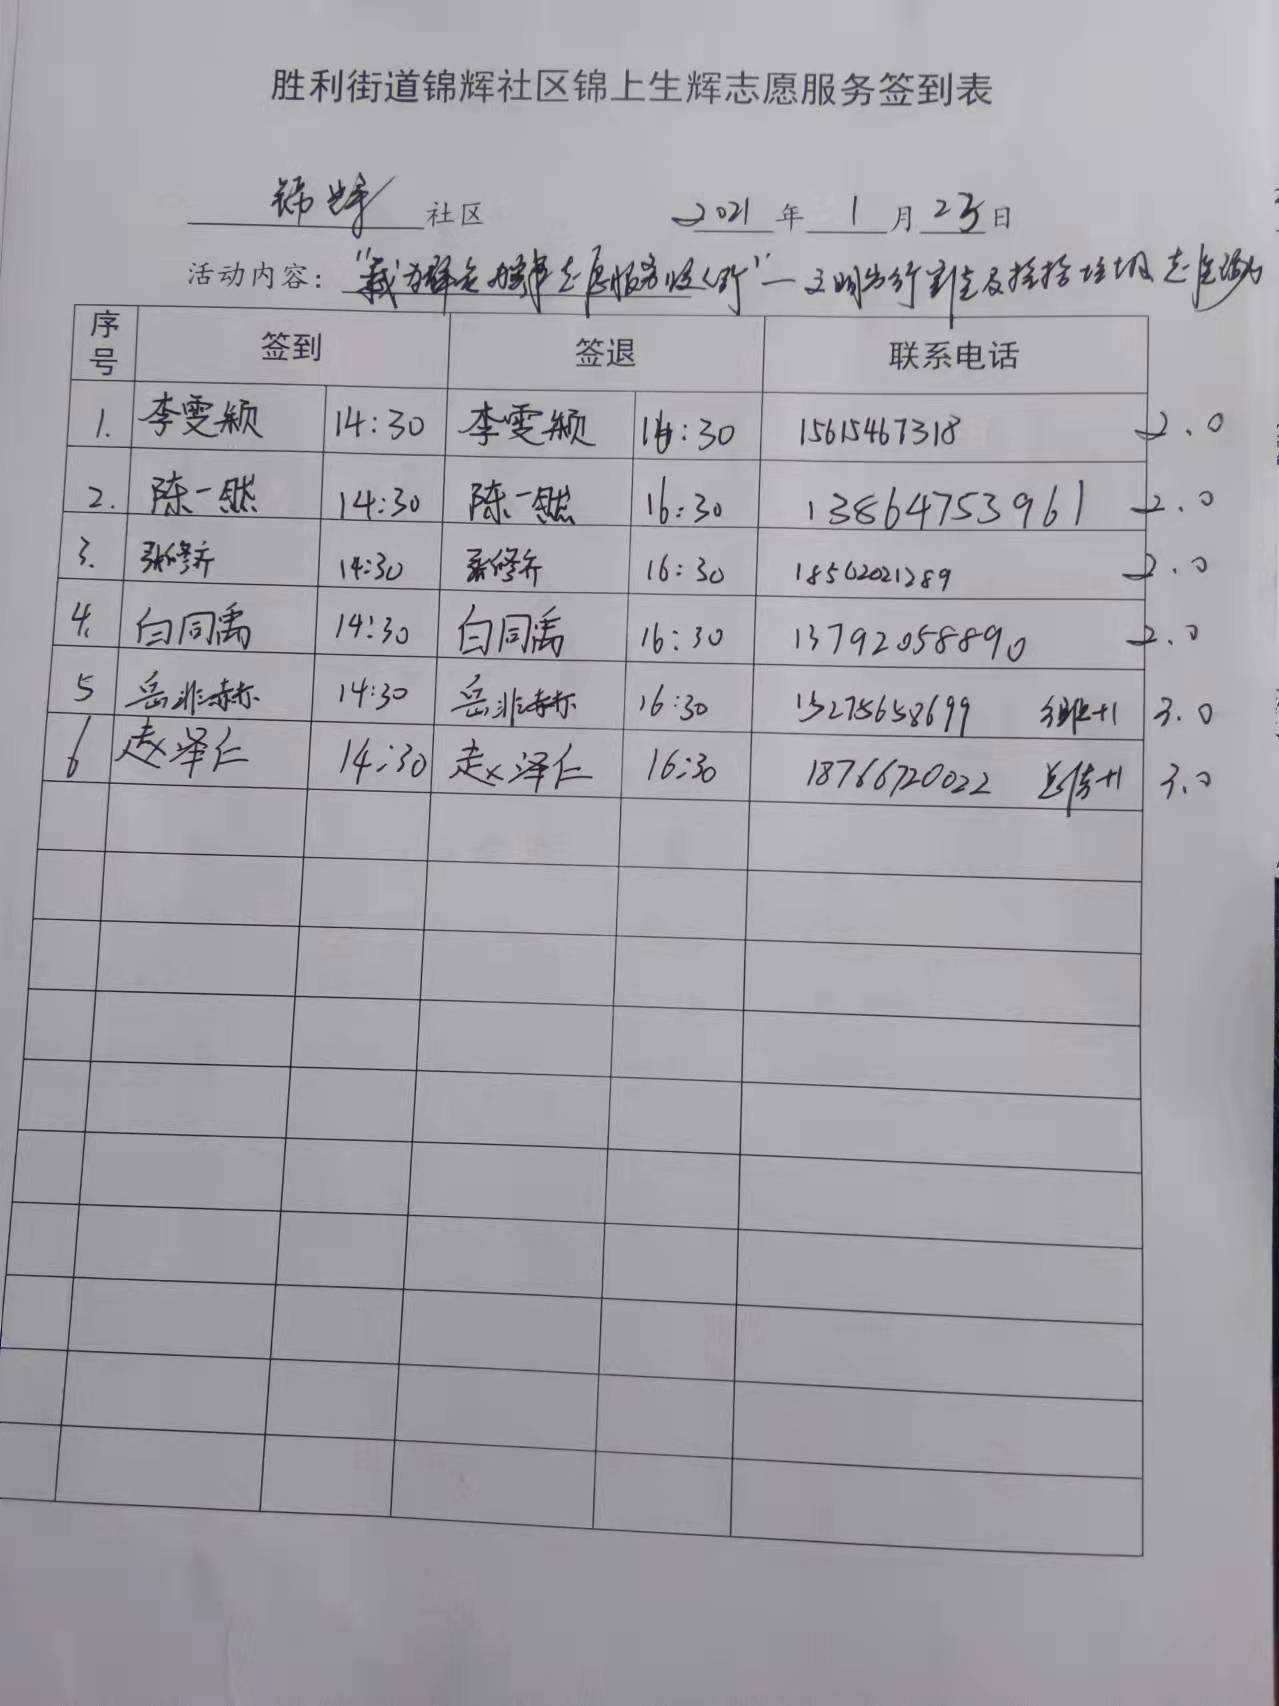 胜利街道锦辉社区锦上生辉志愿服务签到表
锦辉 社区 2021 年 1 月 23 日
活动内容：“我为群众办实事志愿服务暖人心”—文明出行宣传及捡拾垃圾志愿活动
序号 签到 签退 联系电话
1. 李雯颖 14:30 李雯颖 16:30 15615467318 2.0
2. 陈一然 14:30 陈一然 16:30 13864753961 2.0
3. 张修齐 14:30 张修齐 16:30 18562021289 2.0
4. 白同禹 14:30 白同禹 16:30 13792058890 2.0
5 岳非赫 14:30 岳非赫 16:30 15275658699 +1 3.0
6 赵泽仁 14:30 赵泽仁 16:30 18766720022 +1 3.0